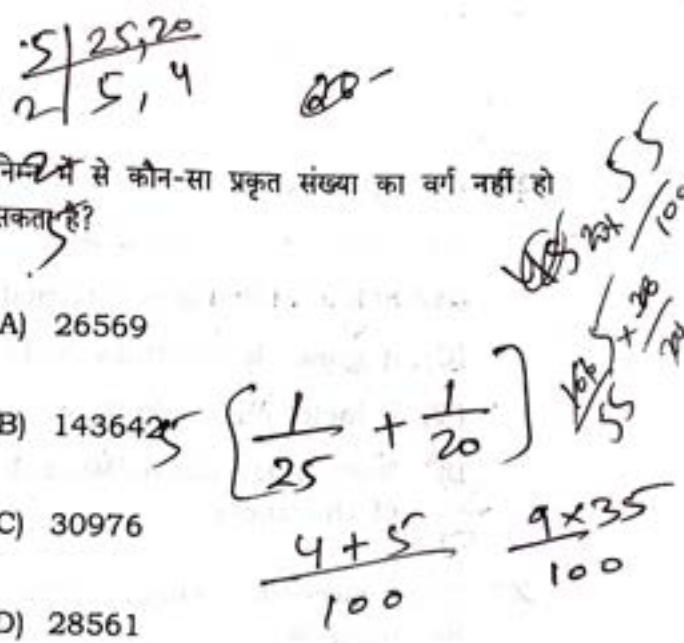 5 | 25, 20
2 | 5, 4
निम्न में से कौन-सा प्रकृत संख्या का वर्ग नहीं हो
सकता है?
A) 26569
B) 143642
C) 30976
D) 28561
5 [1/25 + 1/20]
4 + 5 / 100
9 x 35 / 100
55
55